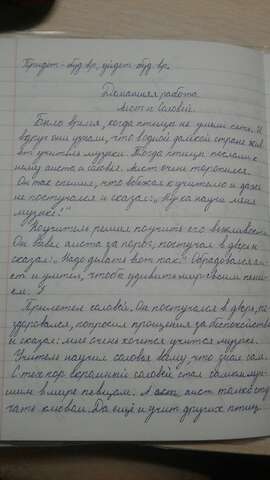 Придёт - буд. вр., уйдёт - буд. вр.
Домашняя работа
Аист и Соловей.
Было время, когда птицы не умели петь. И
вдруг они узнали, что в одной далёкой стране живё
ет учитель музыки. Тогда птицы послали к
нему аиста и соловья. Аист очень торопился.
Он так спешил, что вбежал к учителю и даже
не постучался и сказал: „Ну ка научи меня
музыке!"
Но учитель решил поучить его вежливости.
Он вывел аиста за порог, постучал в дверь и
сказал: „Надо делать вот так". Обрадовался а
ист и улетел, чтобы удивить мир своим пени
ем.
Прилетел соловей. Он постучался в дверь, по
здоровался, попросил прощения за беспокойство
и сказал: мне очень хочется учится музыке.
Учитель научил соловья всему что знал сам.
С тех пор соловей стал самым луч
шим в мире певцом. А аист только сту
чать клювом. Да ещё и учит других птиц.